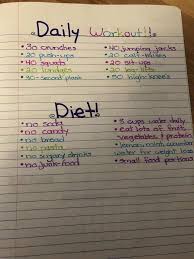 Daily Workout!!
• 30 crunches
• 20 push-ups
• 40 squats
• 20 lunges
• 30-second plank
• 40 jumping jacks
• 20 calf-raises
• 20 sit-ups
• 20 leg-lifts
• 50 high-knees
Diet!
• no soda
• no candy
• no bread
• no pasta
• no sugary drinks
• no junk-food
• 8 cups water daily
• eat lots of fruits,
vegetables & protein
• lemon, mint, cucumber
water for weight loss
• small food portions